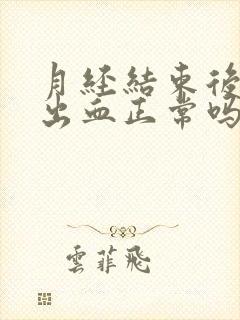 月经結束後
出血正常吗
雲菲飛